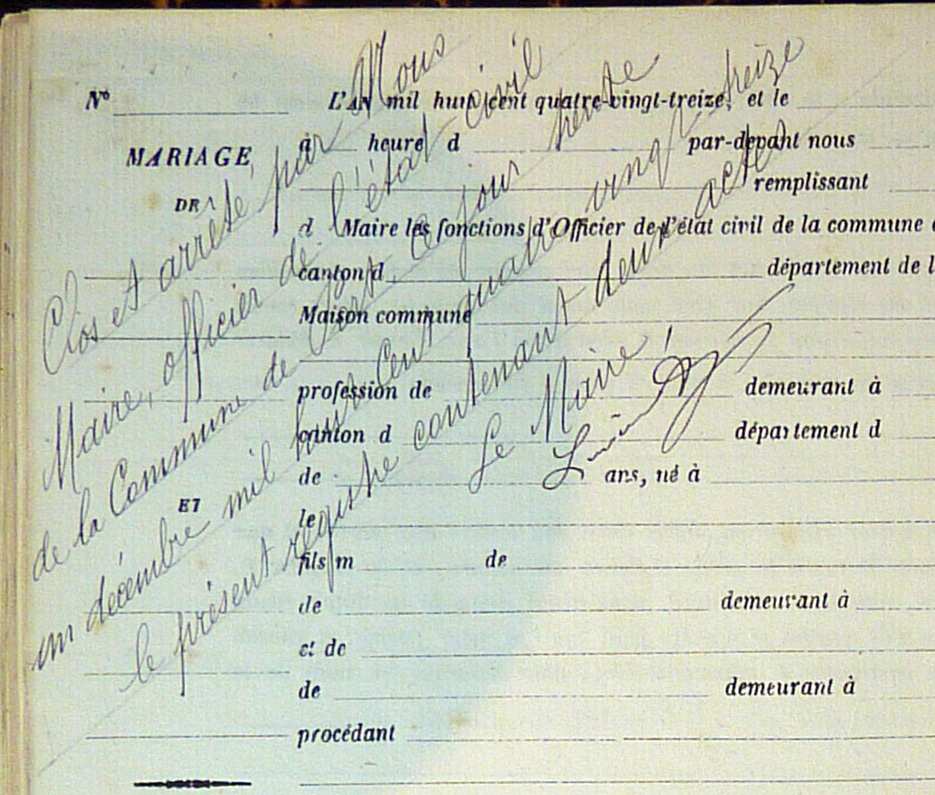 Nº
MARIAGE
DE
ET
L'AN mil huit cent quatre-vingt-treize, et le
à heure d par-devant nous
remplissant
d Maire les fonctions d'Officier de l'état civil de la commune
canton d département de l
Maison commune
profession de demeurant à
canton d département d
de ans, né à
le
fils m de
de demeurant à
et de
de demeurant à
procédant
Clos et arrêté par Nous
Maire, officier de l'état civil
de la Commune de ce jour trente
un décembre mil huit cent quatre vingt treize
le présent registre contenant deux actes
Le Maire